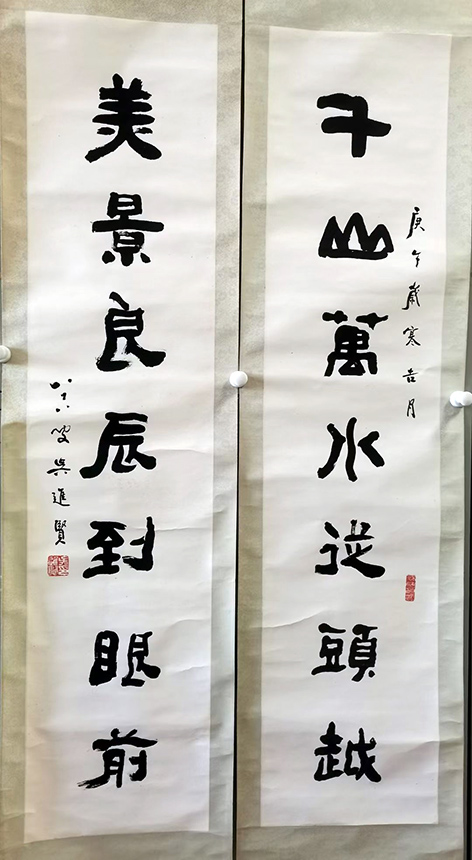 千山萬水從頭越
庚午歲寒吉月
美景良辰到眼前
八十八叟吳進賢